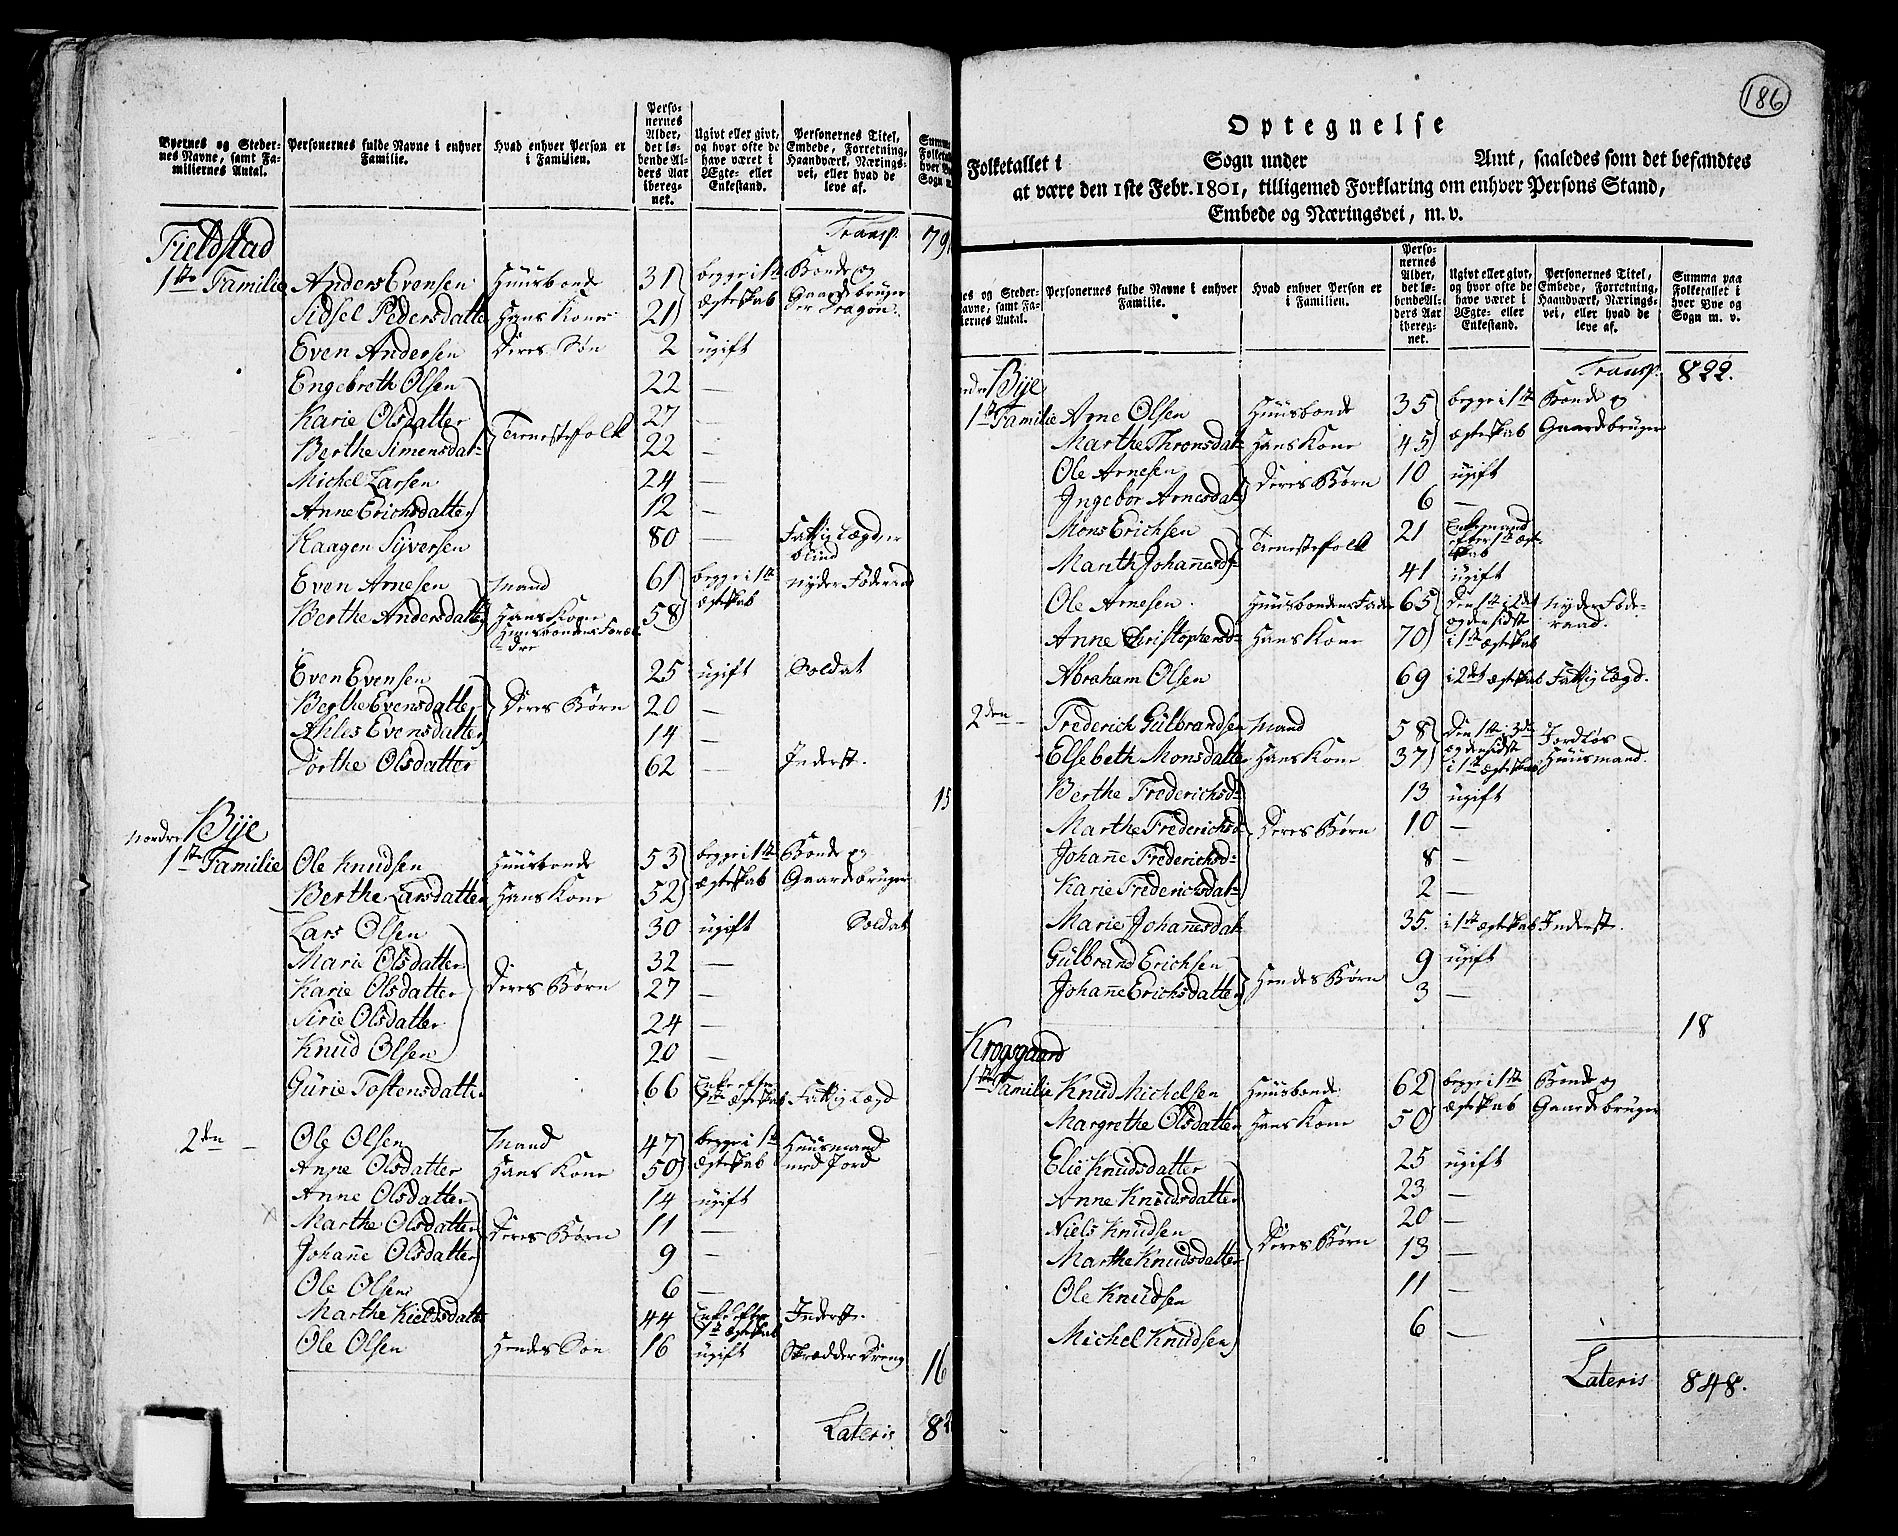 Byernes og Steder-
nes Navne, samt Fa-
miliernes Antal.
Personernes fulde Navne i enhver
Familie.
Hvad enhver Person er
i Familien.
Perso-
nernes
Alder,
det lø-
bende Al-
ders Aar
ibereg-
net.
Ugivt eller givt,
og hvor ofte de
have været i
Ægte- eller
Enkestand.
Personernes Titel,
Embede, Forretning,
Haandværk, Nærings-
vei, eller hvad de
leve af.
Transp.
Fieldstad
1ste Familie Anders Evensen Huusbonde 31 begge i 1ste Bonde og
Sidsel Pedersdatter Hans Kone 21 Ægteskab Gaardebruger
der Dragon.
Even Andersen Deres Søn 2 ugift
Engebreth Olsen 22 —
Karie Olsdatter 27 —
Tienestefolk
Berthe Simensdat- 22 —
Michel Larsen 24 —
Anne Erichsdatter 12 —
Haagen Syversen 80 — Fattig Lægd, er
blind
Even Arnesen Mand 61 begge i 1ste nyder Føderaad
Berthe Andersdatter Hans Kone 58 Ægteskab
Huusbondens Foræl-
dre
Even Evensen 25 ugift Soldat
Berthe Evensdatter Deres Børn 20 —
Ahles Evensdatter 14 —
Dorthe Olsdatter 62 — Inderst.
15
Nordre Bye
1ste Familie Ole Knudsen Huusbonde 53 begge i 1ste Bonde og
Berthe Larsdatter Hans Kone 52 Ægteskab Gaardebruger
Lars Olsen 30 ugift Soldat
Marie Olsdatter 32 —
Karie Olsdatter Deres Børn 27 —
Sirie Olsdatter 24 —
Knud Olsen 20 —
Gurie Tostensdatter 66 Enke efter
1ste Ægteskab Fattig Lægd
2den — Ole Olsen Mand 47 begge i 1ste Huusmand
Anne Olsdatter Hans Kone 50 Ægteskab med Jord
Anne Olsdatter 14 ugift
Marthe Olsdatter Deres Børn 11 —
Johanne Olsdatter 9 —
Ole Olsen 6 —
Marthe Kieldsdatter 44 Enke efter Inderst.
1ste Ægteskab
Ole Olsen Hendes Søn 16 ugift Skrædder Dreng
16
Lateris
186
Optegnelse
Folketallet i Sogn under Amt, saaledes som det befandtes
at være den 1ste Febr. 1801, tilligemed Forklaring om enhver Persons Stand,
Embede og Næringsvei, m. v.
Personernes fulde Navne i enhver
Familie.
Hvad enhver Person er
i Familien.
Perso-
nernes
Alder,
det lø-
bende Al-
ders Aar
ibereg-
net.
Ugivt eller givt,
og hvor ofte de
have været i
Ægte- eller
Enkestand.
Personernes Titel,
Embede, Forretning,
Haandværk, Nærings-
vei, eller hvad de
leve af.
Summa paa
Folketallet i
hver Bye og
Sogn m. v.
Transp. 822.
Bye
1ste Familie Arne Olsen Huusbonde 35 begge i 1ste Bonde og
Marthe Thronsdat- Hans Kone 45 Ægteskab Gaardebruger
Ole Arnesen Deres Børn 10 ugift
Ingebor Arnesdat- 6 —
Mons Erichsen Tienestefolk 21 Enkemand
efter 1ste Ægte-
skab
Marith Johannesd- 41 ugift
Ole Arnesen Huusbondens Fader 65 Den 1ste i 2det Nyder Føde-
og den sidst raad.
Anne Christophersd- Hans Kone 70 i 1ste Ægteskab
Abraham Olsen 69 i 2det Ægteskab Fattig Lægd.
2den — Frederich Gulbrandsen Mand 58 Den 1ste i 3die Jordløs
og den sidst
Elsebeth Monsdatter Hans Kone 37 i 1ste Ægteskab Huusmand.
Berthe Frederichsd- 13 ugift
Marthe Frederichsd- Deres Børn 10 —
Johanne Frederichsd- 8 —
Karie Frederichsdat- 2 —
Marie Johannesdat- 35. i 1ste Ægteskab Inderst.
Gulbrand Erichsen 9 ugift
Hendes Børn
Johanne Erichsdatter 3 —
18
Krogsgaard
1ste Familie Knud Michelsen Huusbonde 62 begge i 1ste Bonde og
Margrethe Olsdatter Hans Kone 50 Ægteskab Gaardebruger
Elie Knudsdatter 25 ugift
Anne Knudsdatter 23 —
Niels Knudsen 20 —
Deres Børn
Marthe Knudsdatter 13 —
Ole Knudsen 11 —
Michel Knudsen 6 —
Lateris 848.